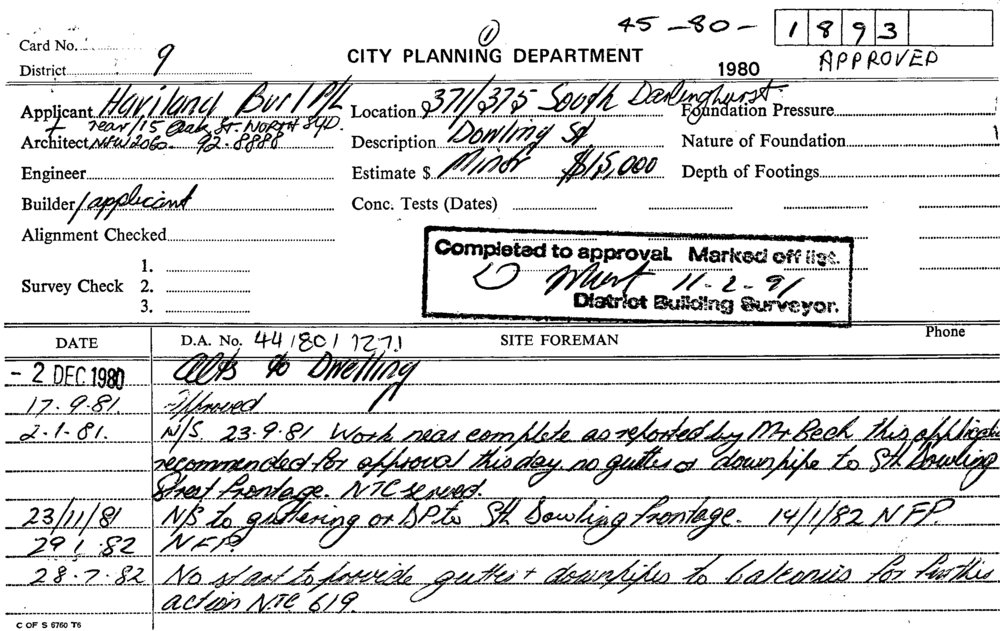 45-80- 1893
Card No. 1 APPROVED
District 9 CITY PLANNING DEPARTMENT 1980
Applicant Haviland Bur/ P/L Location 371/375 South Darlinghurst Foundation Pressure
+ rear/15 Oak St. North Syd.
Architect NSW 2060. 92-8888 Description Dowling St Nature of Foundation
Engineer Estimate $ Minor $15,000 Depth of Footings
Builder/applicant Conc. Tests (Dates)
Alignment Checked
Completed to approval. Marked off list.
1.
Survey Check 2. 11-2-91
3. District Building Surveyor.
DATE D.A. No. 44/80/1271 SITE FOREMAN Phone
- 2 DEC 1980 Alts to Dwelling
17.9.81. Approved
2-1-81. N/S. 23-9-81 Work near complete as reported by Mr Beck this applicatio
recommended for approval this day no gutter or downpipe to Sth Dowling
Street frontage. NTC served.
23/11/81 N/S to guttering or DP to Sth Dowling frontage. 14/1/82 NFP.
29.1.82 NFP.
28.7.82 No start to provide gutter + downpipes to balconies for further
action NTC 619.
C OF S 6760 T6